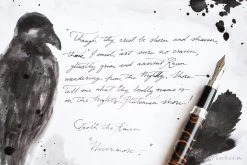 "Though thy crest be shorn and shaven,
thou," I said, "art sure no craven,
ghastly grim and ancient Raven
wandering from the Nightly shore.
Tell me what thy lordly name is
on the Night's Plutonian shore."
Quoth the Raven
"Nevermore."